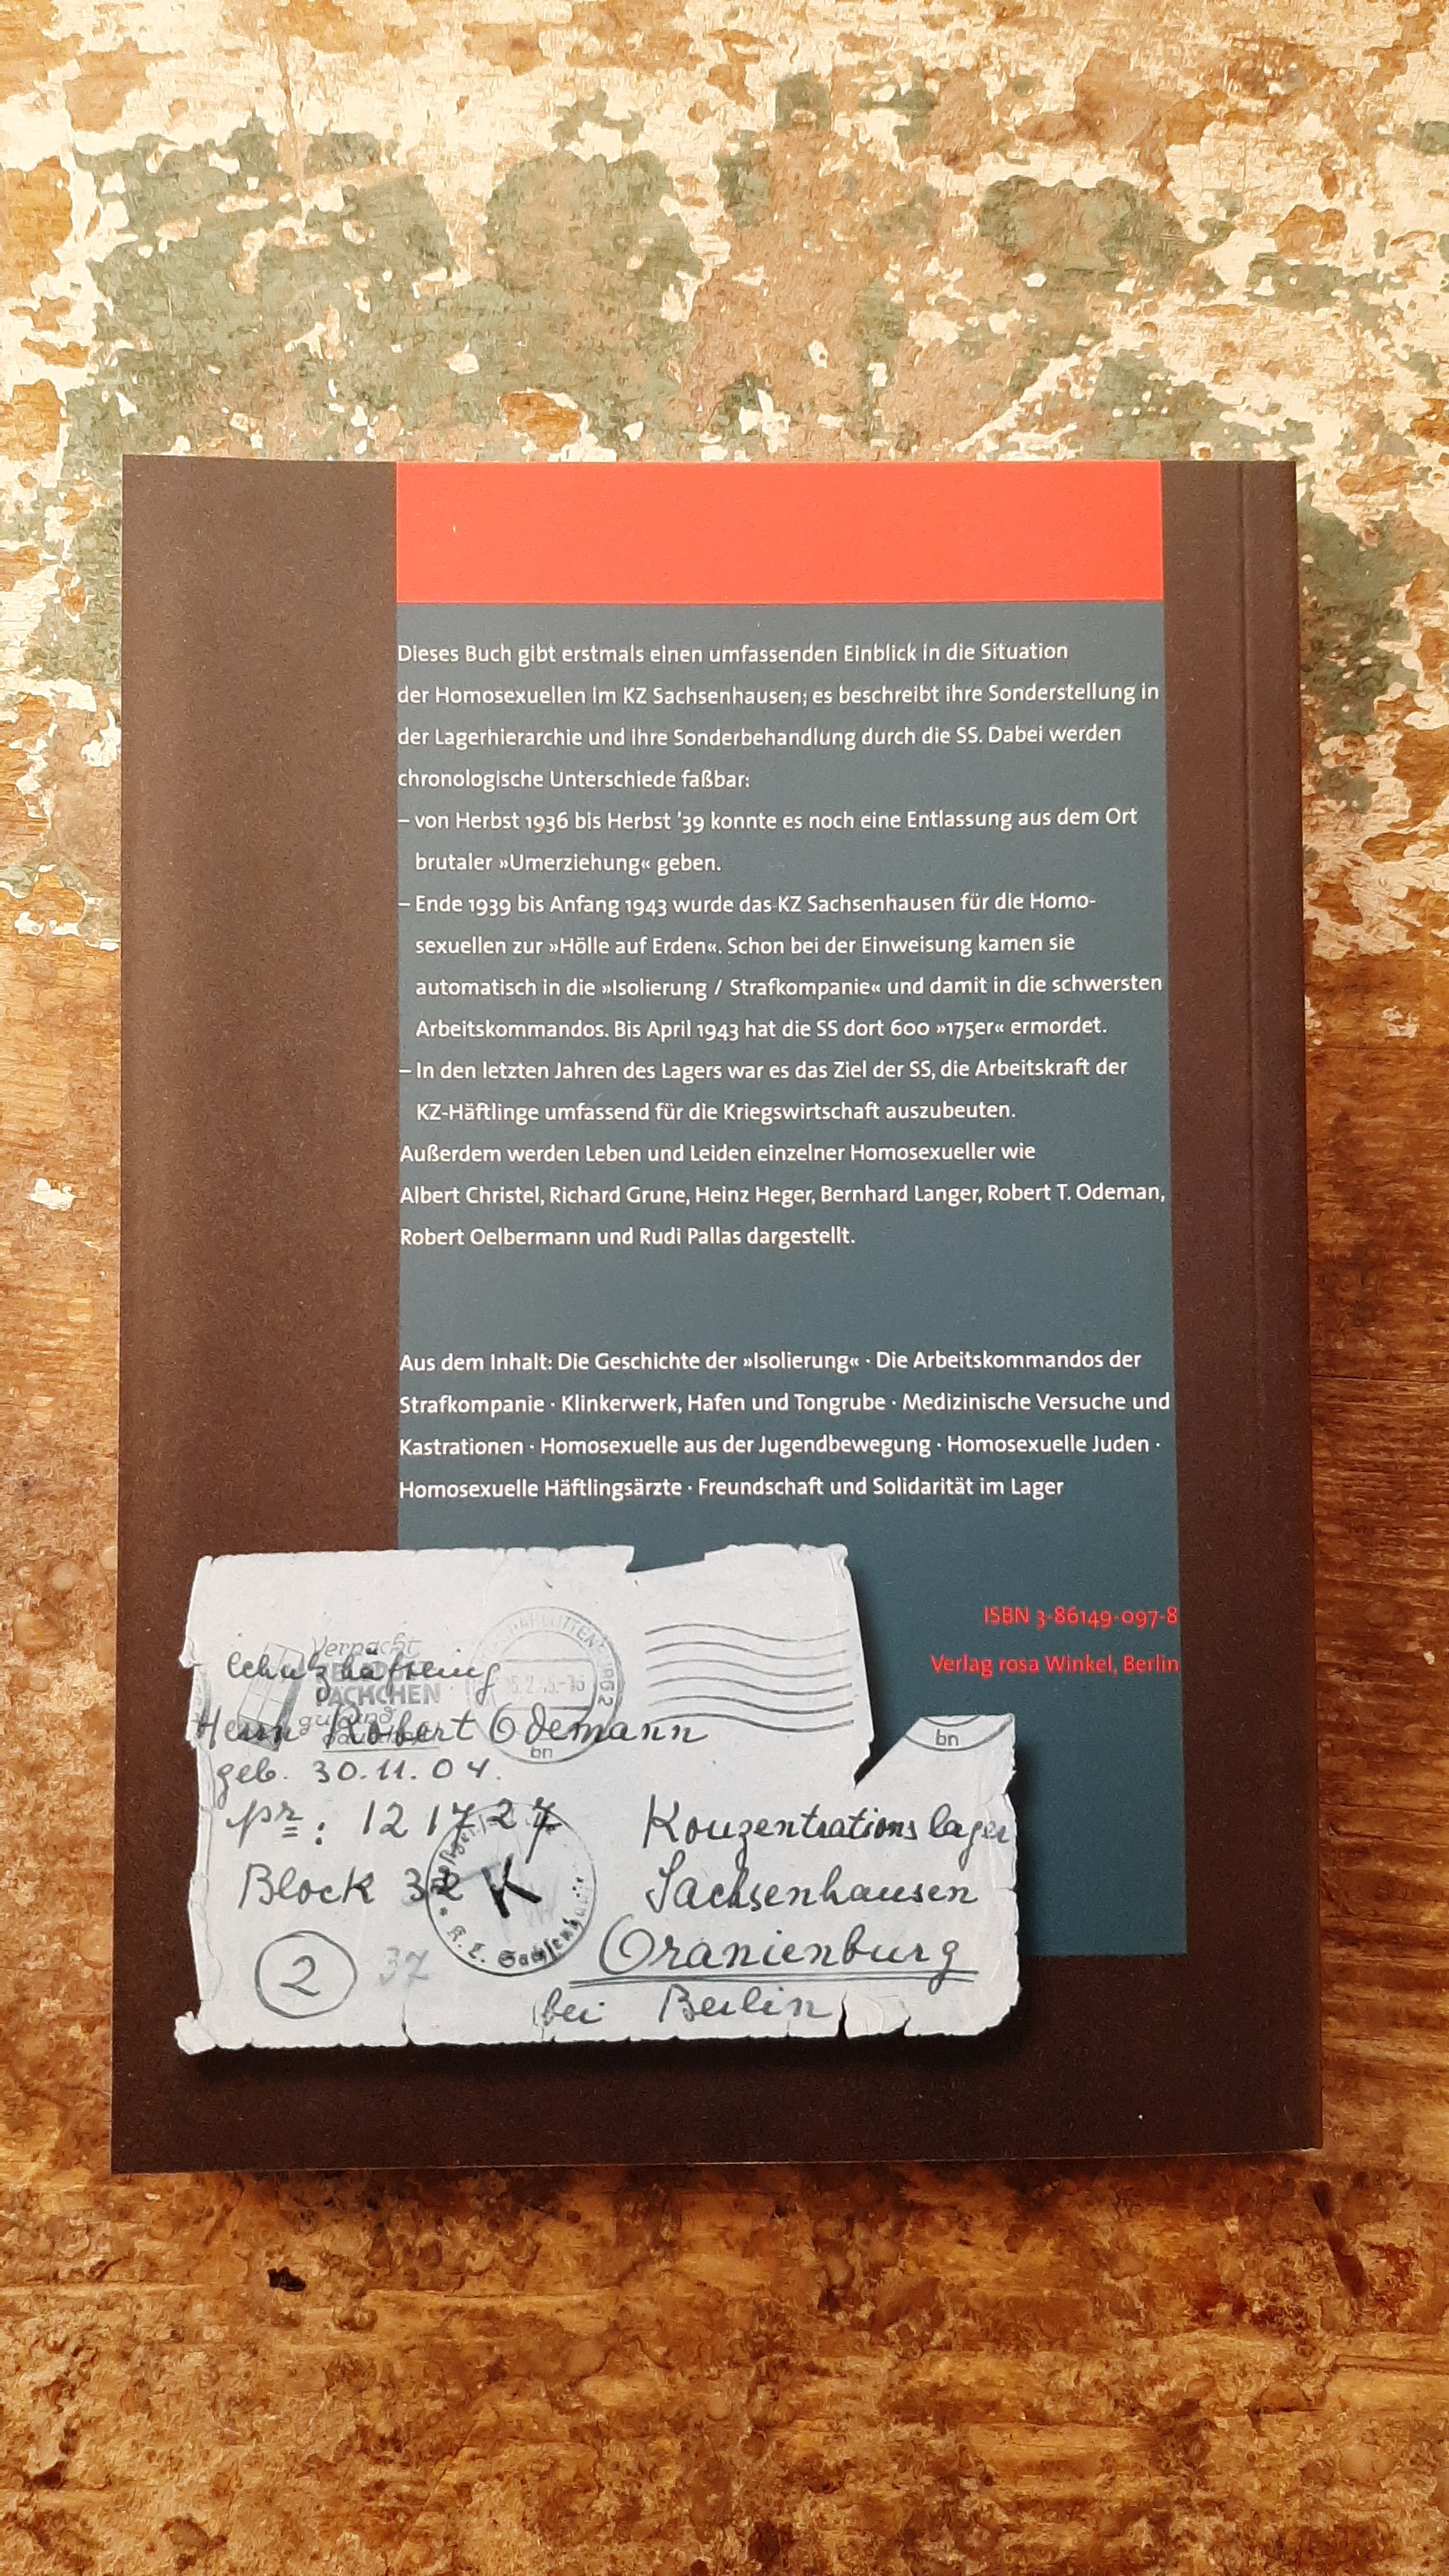 Dieses Buch gibt erstmals einen umfassenden Einblick in die Situation
der Homosexuellen im KZ Sachsenhausen; es beschreibt ihre Sonderstellung in
der Lagerhierarchie und ihre Sonderbehandlung durch die SS. Dabei werden
chronologische Unterschiede faßbar:
– von Herbst 1936 bis Herbst '39 konnte es noch eine Entlassung aus dem Ort
brutaler »Umerziehung« geben.
– Ende 1939 bis Anfang 1943 wurde das KZ Sachsenhausen für die Homo-
sexuellen zur »Hölle auf Erden«. Schon bei der Einweisung kamen sie
automatisch in die »Isolierung / Strafkompanie« und damit in die schwersten
Arbeitskommandos. Bis April 1943 hat die SS dort 600 »175er« ermordet.
– In den letzten Jahren des Lagers war es das Ziel der SS, die Arbeitskraft der
KZ-Häftlinge umfassend für die Kriegswirtschaft auszubeuten.
Außerdem werden Leben und Leiden einzelner Homosexueller wie
Albert Christel, Richard Grune, Heinz Heger, Bernhard Langer, Robert T. Odeman,
Robert Oelbermann und Rudi Pallas dargestellt.
Aus dem Inhalt: Die Geschichte der »Isolierung« · Die Arbeitskommandos der
Strafkompanie · Klinkerwerk, Hafen und Tongrube · Medizinische Versuche und
Kastrationen · Homosexuelle aus der Jugendbewegung · Homosexuelle Juden ·
Homosexuelle Häftlingsärzte · Freundschaft und Solidarität im Lager
ISBN 3-86149-097-8
Verlag rosa Winkel, Berlin
Verpackt
PÄCKCHEN
Schutzhäftling
Herrn Robert Odemann
bn
bn
geb. 30.11.04.
nr: 121727
Konzentrationslager
Block 32
K
Sachsenhausen
K. L. Sachsenhausen
Oranienburg
2
37
bei Berlin